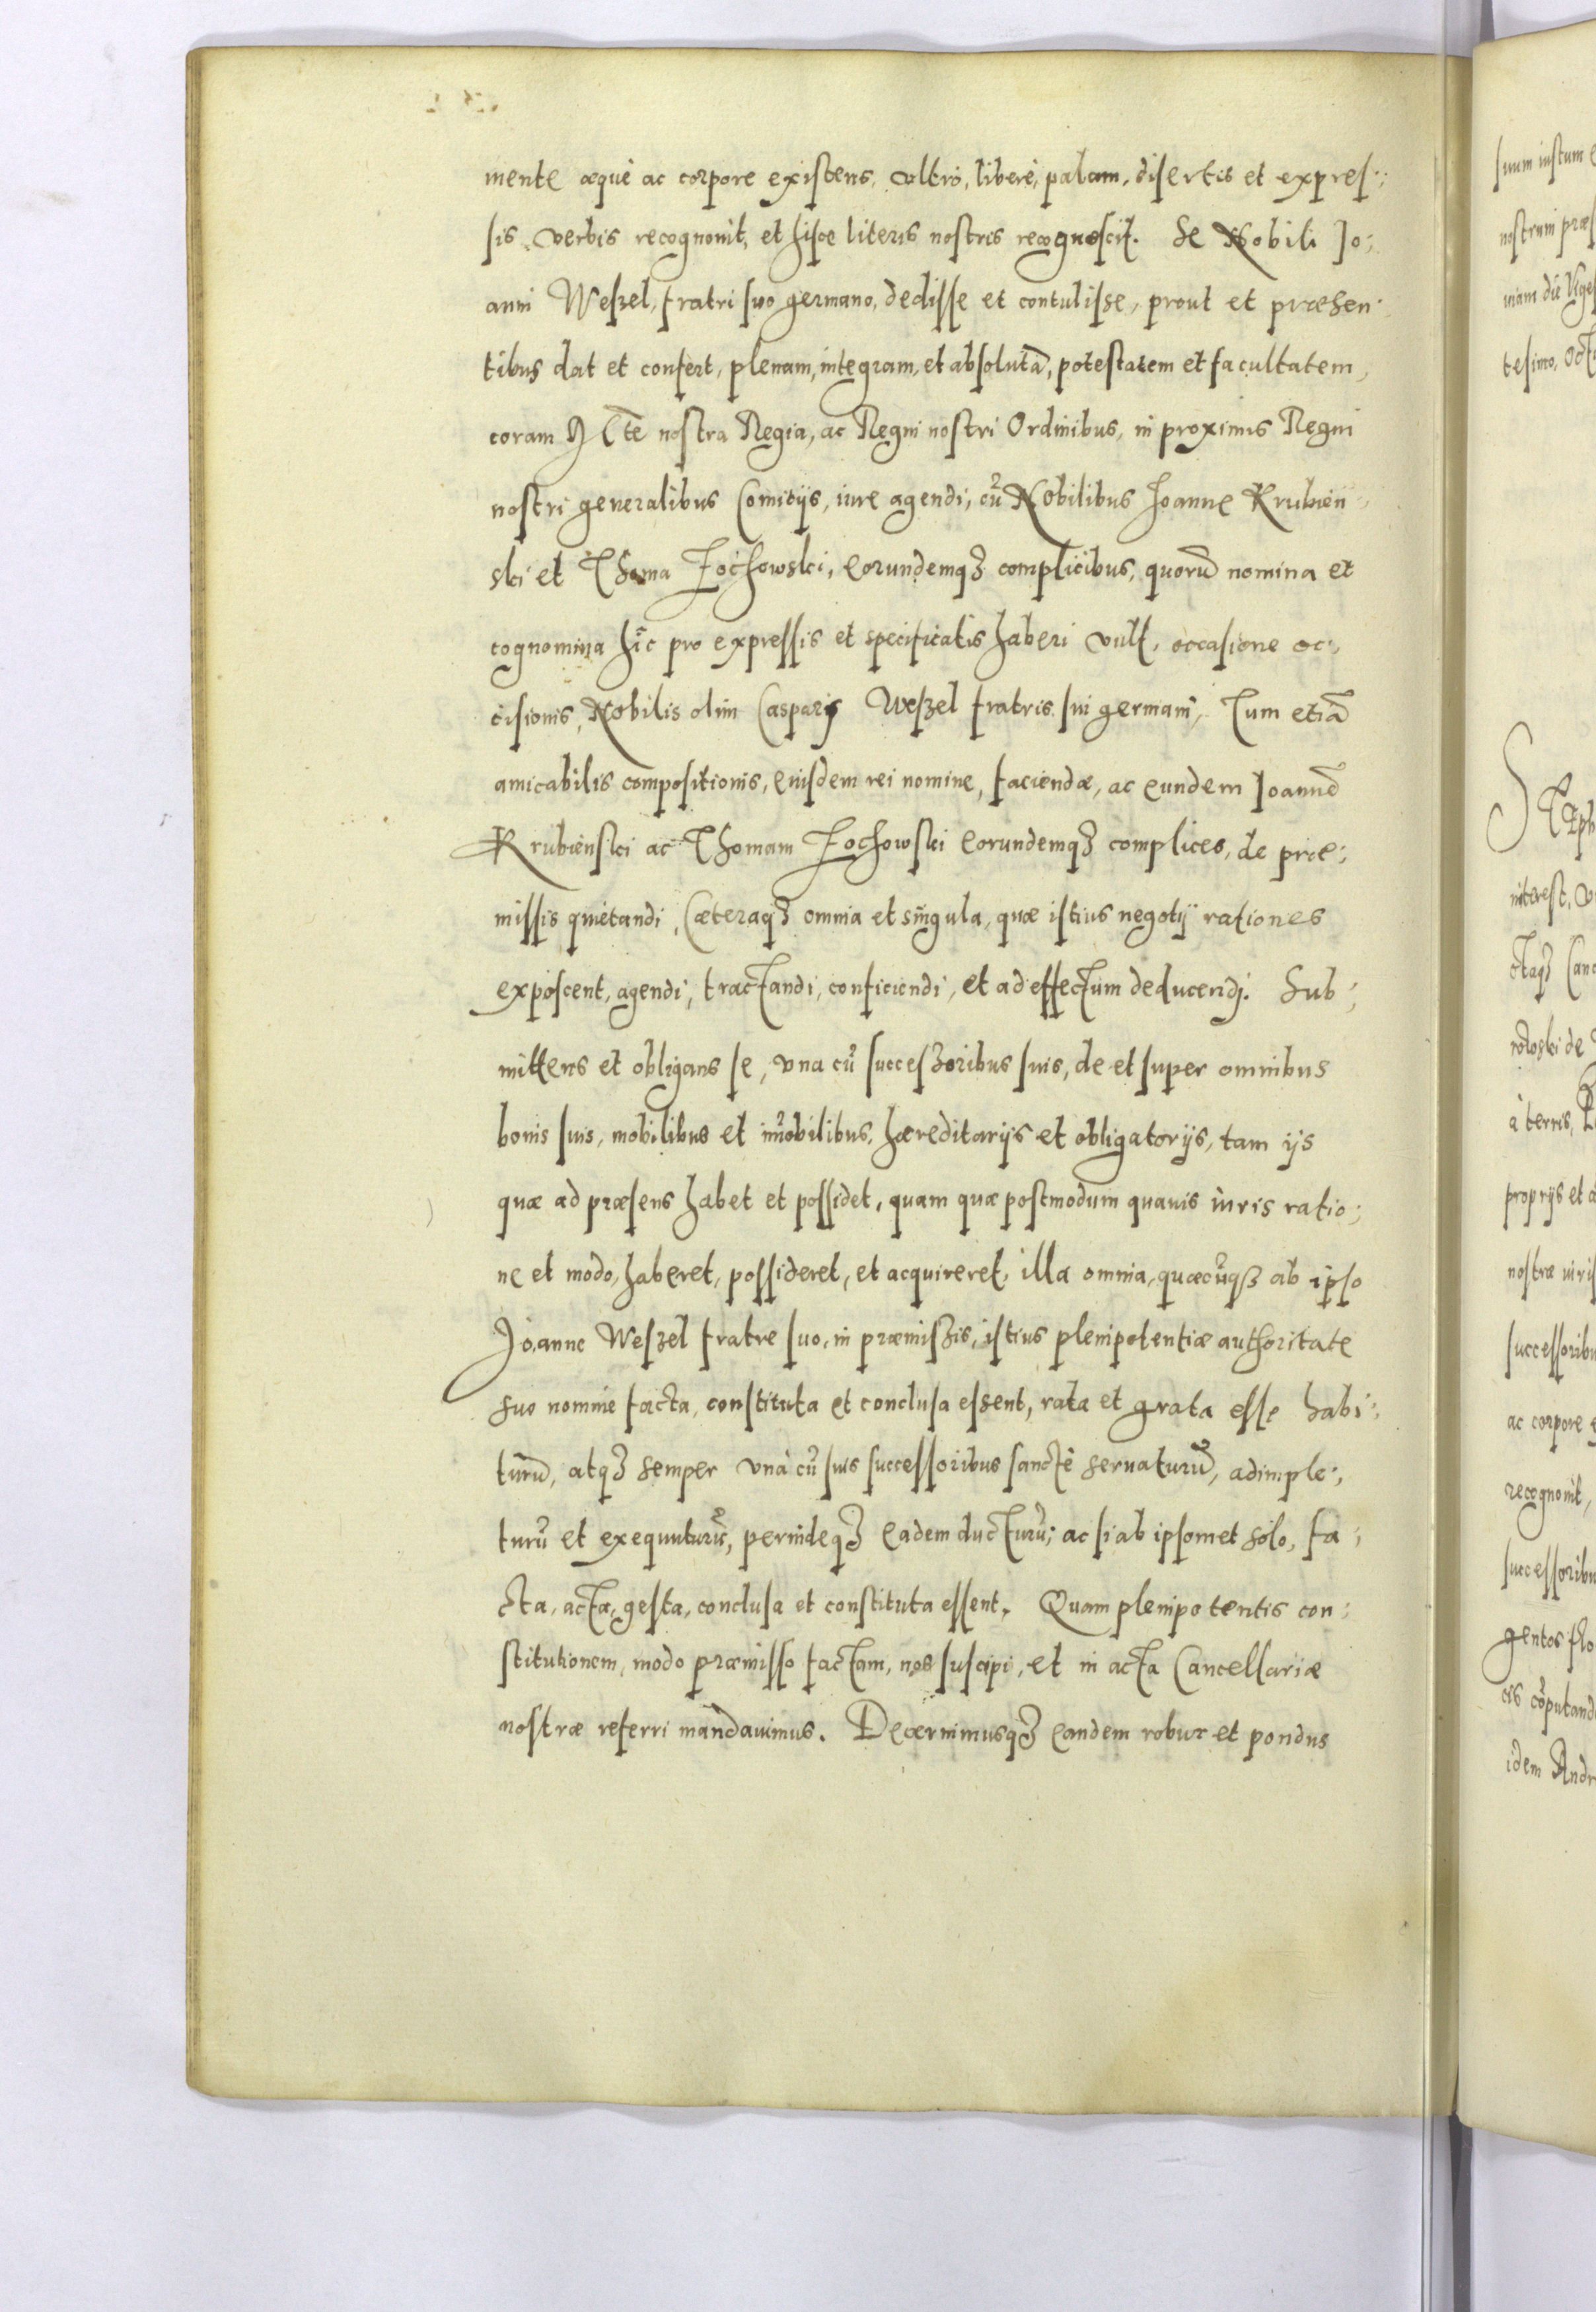 mente æquè ac corpore existens, vltrò, liberè, palam, disertis et expres:,
sis verbis recognouit, et hisce literis nostris recognoscit. Se Nobili Jo:,
anni Weszel, fratri suo germano, dedisse et contulisse, prout et præsen:
tibus dat et confert, plenam, integram, et absolutã, potestatem et facultatem,
coram M̃te nostra Regia, ac Regni nostri Ordinibus, in proximis Regni
nostri generalibus Comitijs, iure agendi, cũ Nobilibus Joanne Krubien:
ski et Thoma Zochowski, eorundemqʒ complicibus, quorũ nomina et
cognomina hîc pro expressis et specificatis haberi vult, occasione oc:,
cisionis, Nobilis olim Casparis Weszel fratris sui germani, Tum etiã
amicabilis compositionis, eiusdem rei nomine, faciendæ, ac eundem Joannẽ
Krubienski ac Thomam Zochowski eorundemqʒ complices, de præ:,
missis quietandi, Cæteraqʒ omnia et singula, quæ istius negotij rationes
exposcent, agendi, tractandi, conficiendi, et ad effectum deducendi. Sub:,
mittens et obligans se, vna cũ successoribus suis, de et super omnibus
bonis suis, mobilibus et im̃obilibus, hæreditarijs et obligatorijs, tam ijs
quæ ad præsens habet et possidet, quam quæ postmodum quauis iuris ratio:,
ne et modo, haberet, possideret, et acquireret, illa omnia, quæcũqʒ ab ipso
Joanne Weszel fratre suo, in præmissis, istius plenipotentiæ authoritate
suo nomine facta, constituta et conclusa essent, rata et grata esse habi:,
turũ, atqʒ semper vnà cũ suis successoribus sanctè seruaturũ, adimple:,
turũ et exequuturũ, perindeqʒ eadem ducturũ; ac si ab ipsomet solo, fa:,
cta, acta, gesta, conclusa et constituta essent. Quam plenipotentis con:,
stitutionem, modo præmisso factam, nos suscipi, et in acta Cancellariæ
nostræ referri mandauimus. Decernimusqʒ eandem robur et pondus
suum iustum
nostrum
tesimo,
interest,
ctaqʒ
à terris,
proprijs et
nostræ
ac corpore
recognouit,
gentos
idem